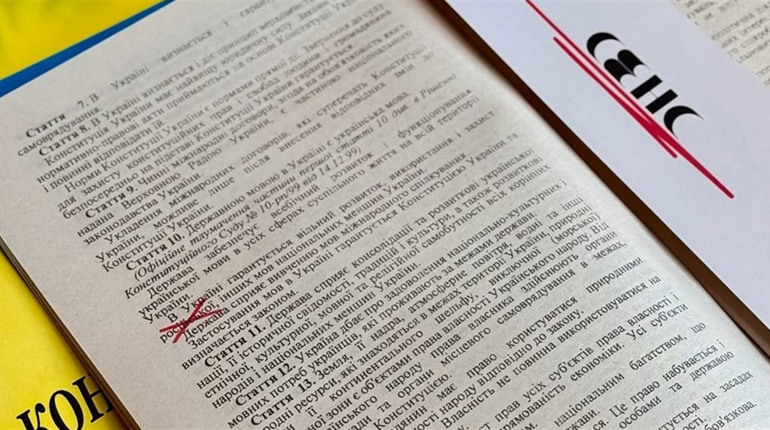 Стаття 7. В Україні визнається і
самоврядування.
Стаття 8. В Україні визнається і діє принцип верховенства
Конституція України має найвищу юридичну силу. Закони
нормативно-правові акти приймаються на основі Конституції
і повинні відповідати їй.
Норми Конституції України є нормами прямої дії. Звернення до суду
для захисту конституційних прав і свобод людини і громадянина
безпосередньо на підставі Конституції України гарантується.
Стаття 9. Чинні міжнародні договори, згода на обов'язковість яких
надана Верховною Радою України, є частиною національного
законодавства України.
Укладення міжнародних договорів, які суперечать Конституції
України, можливе лише після внесення відповідних змін до
Конституції України.
Стаття 10. Державною мовою в Україні є українська мова.
Офіційне тлумачення частини першої статті 10 див. в Рішенні
Конституційного Суду № 10-рп/99 від 14.12.99
Держава забезпечує всебічний розвиток і функціонування
української мови в усіх сферах суспільного життя на всій території
України.
В Україні гарантується вільний розвиток, використання і захист
російської, інших мов національних меншин України.
Держава сприяє вивченню мов міжнародного спілкування.
Застосування мов в Україні гарантується Конституцією України та
визначається законом.
Стаття 11. Держава сприяє консолідації та розвиткові української
нації, її історичної свідомості, традицій і культури, а також розвиткові
етнічної, культурної, мовної та релігійної самобутності всіх корінних
народів і національних меншин України.
Стаття 12. Україна дбає про задоволення національно-культурних і
мовних потреб українців, які проживають за межами держави.
Стаття 13. Земля, її надра, атмосферне повітря, водні та інші
природні ресурси, які знаходяться в межах території України, природні
ресурси її континентального шельфу, виключної (морської)
економічної зони є об'єктами права власності Українського народу. Від
імені Українського народу права власника здійснюють органи
державної влади та органи місцевого самоврядування в межах,
Конституцією.
громадянин має право користуватися природними
права власності народу відповідно до закону.
Власність не повинна використовуватися на
прав усіх суб'єктів права власності і
спрямованість економіки. Усі суб'єкти
національним багатством, що
держави.
Це право набувається і
особами та державою
ґрунтується на засадах
СЕНС
КОН